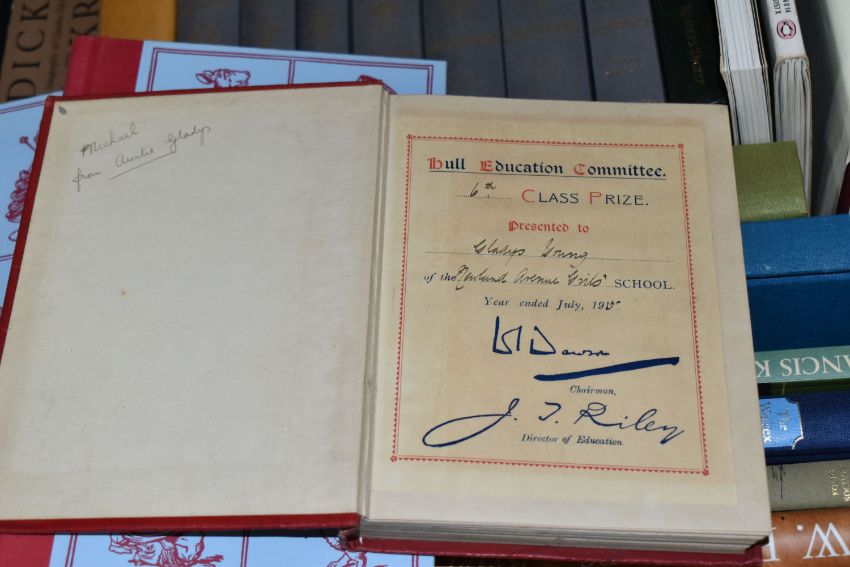 Michael
from Auntie Gladys
Hull Education Committee.
6th CLASS PRIZE.
Presented to
Gladys Young
of the Newland Avenue Girls' SCHOOL.
Year ended July, 1915
Dawson
Chairman,
J. T. Riley
Director of Education
DICK
ANCIS K
The
Wessex
W.